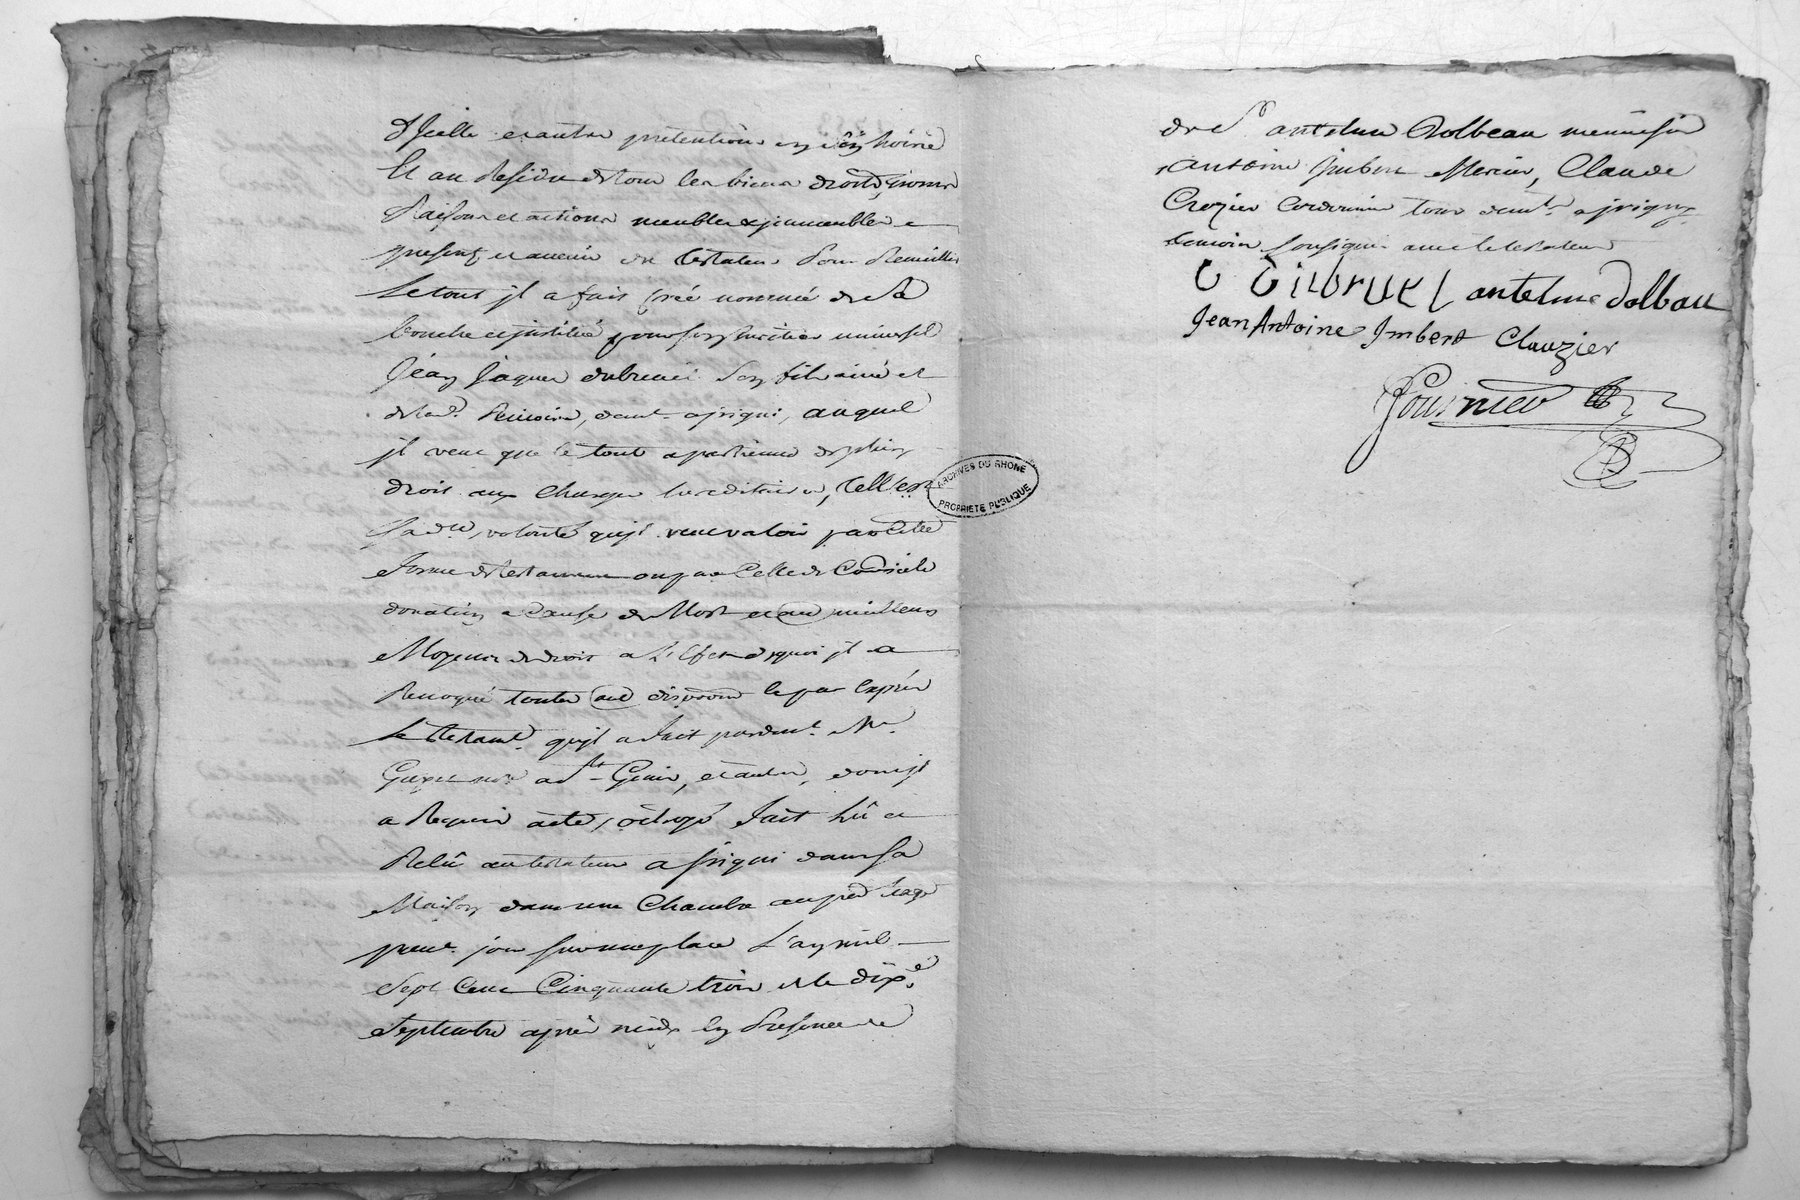 d'Jcelle et autre pretentions en son hoirie
Et au Residu de tous les biens droits, noms
Raisons et actions meubles & jmmeubles
presents et avenir du testateur Pour Recueillir
Le tout jl a fait Créé nommé de sa
bouche et jnstitué pour son heritier universel
Jean Jaques dubruel son fils ainé et
de lad.e demt. a jrigni, auquel
jl veut que le tout apartienne de plein
droit aux Charges hereditaires, telle est
sa d.te volonté qu'jl veut valoir par cette
forme de testament ou par Celle de Codicile
donation a Cause de Mort et au meilleurs
Moyens de droit a L'Effet de quoi jl a
Revoqué toutes aud disposons et par Exprès
Le testamt. qu'jl a fait pardevt. Me.
not.re a St Genis, et autre, dont jl
a Requis acte, octroyé fait Lû et
Relû au testateur a jrigni dans sa
Maison dans une Chambre au pred Etage
prent. jour sur une place L'an mil
Sept Cent Cinquante trois et le dixe.
Septembre après midy En Presence de
de Sr. antelme Dolbeau menuisier
Antoine jmbert Mercier, Claude
Crozier Cordonnier tous demts. a jrigny
temoins soussignés avec le testateur
antelme dolbau
Jean Antoine Jmbert Clauzier
Fournier
ARCHIVES DU RHONE
PROPRIETE PUBLIQUE